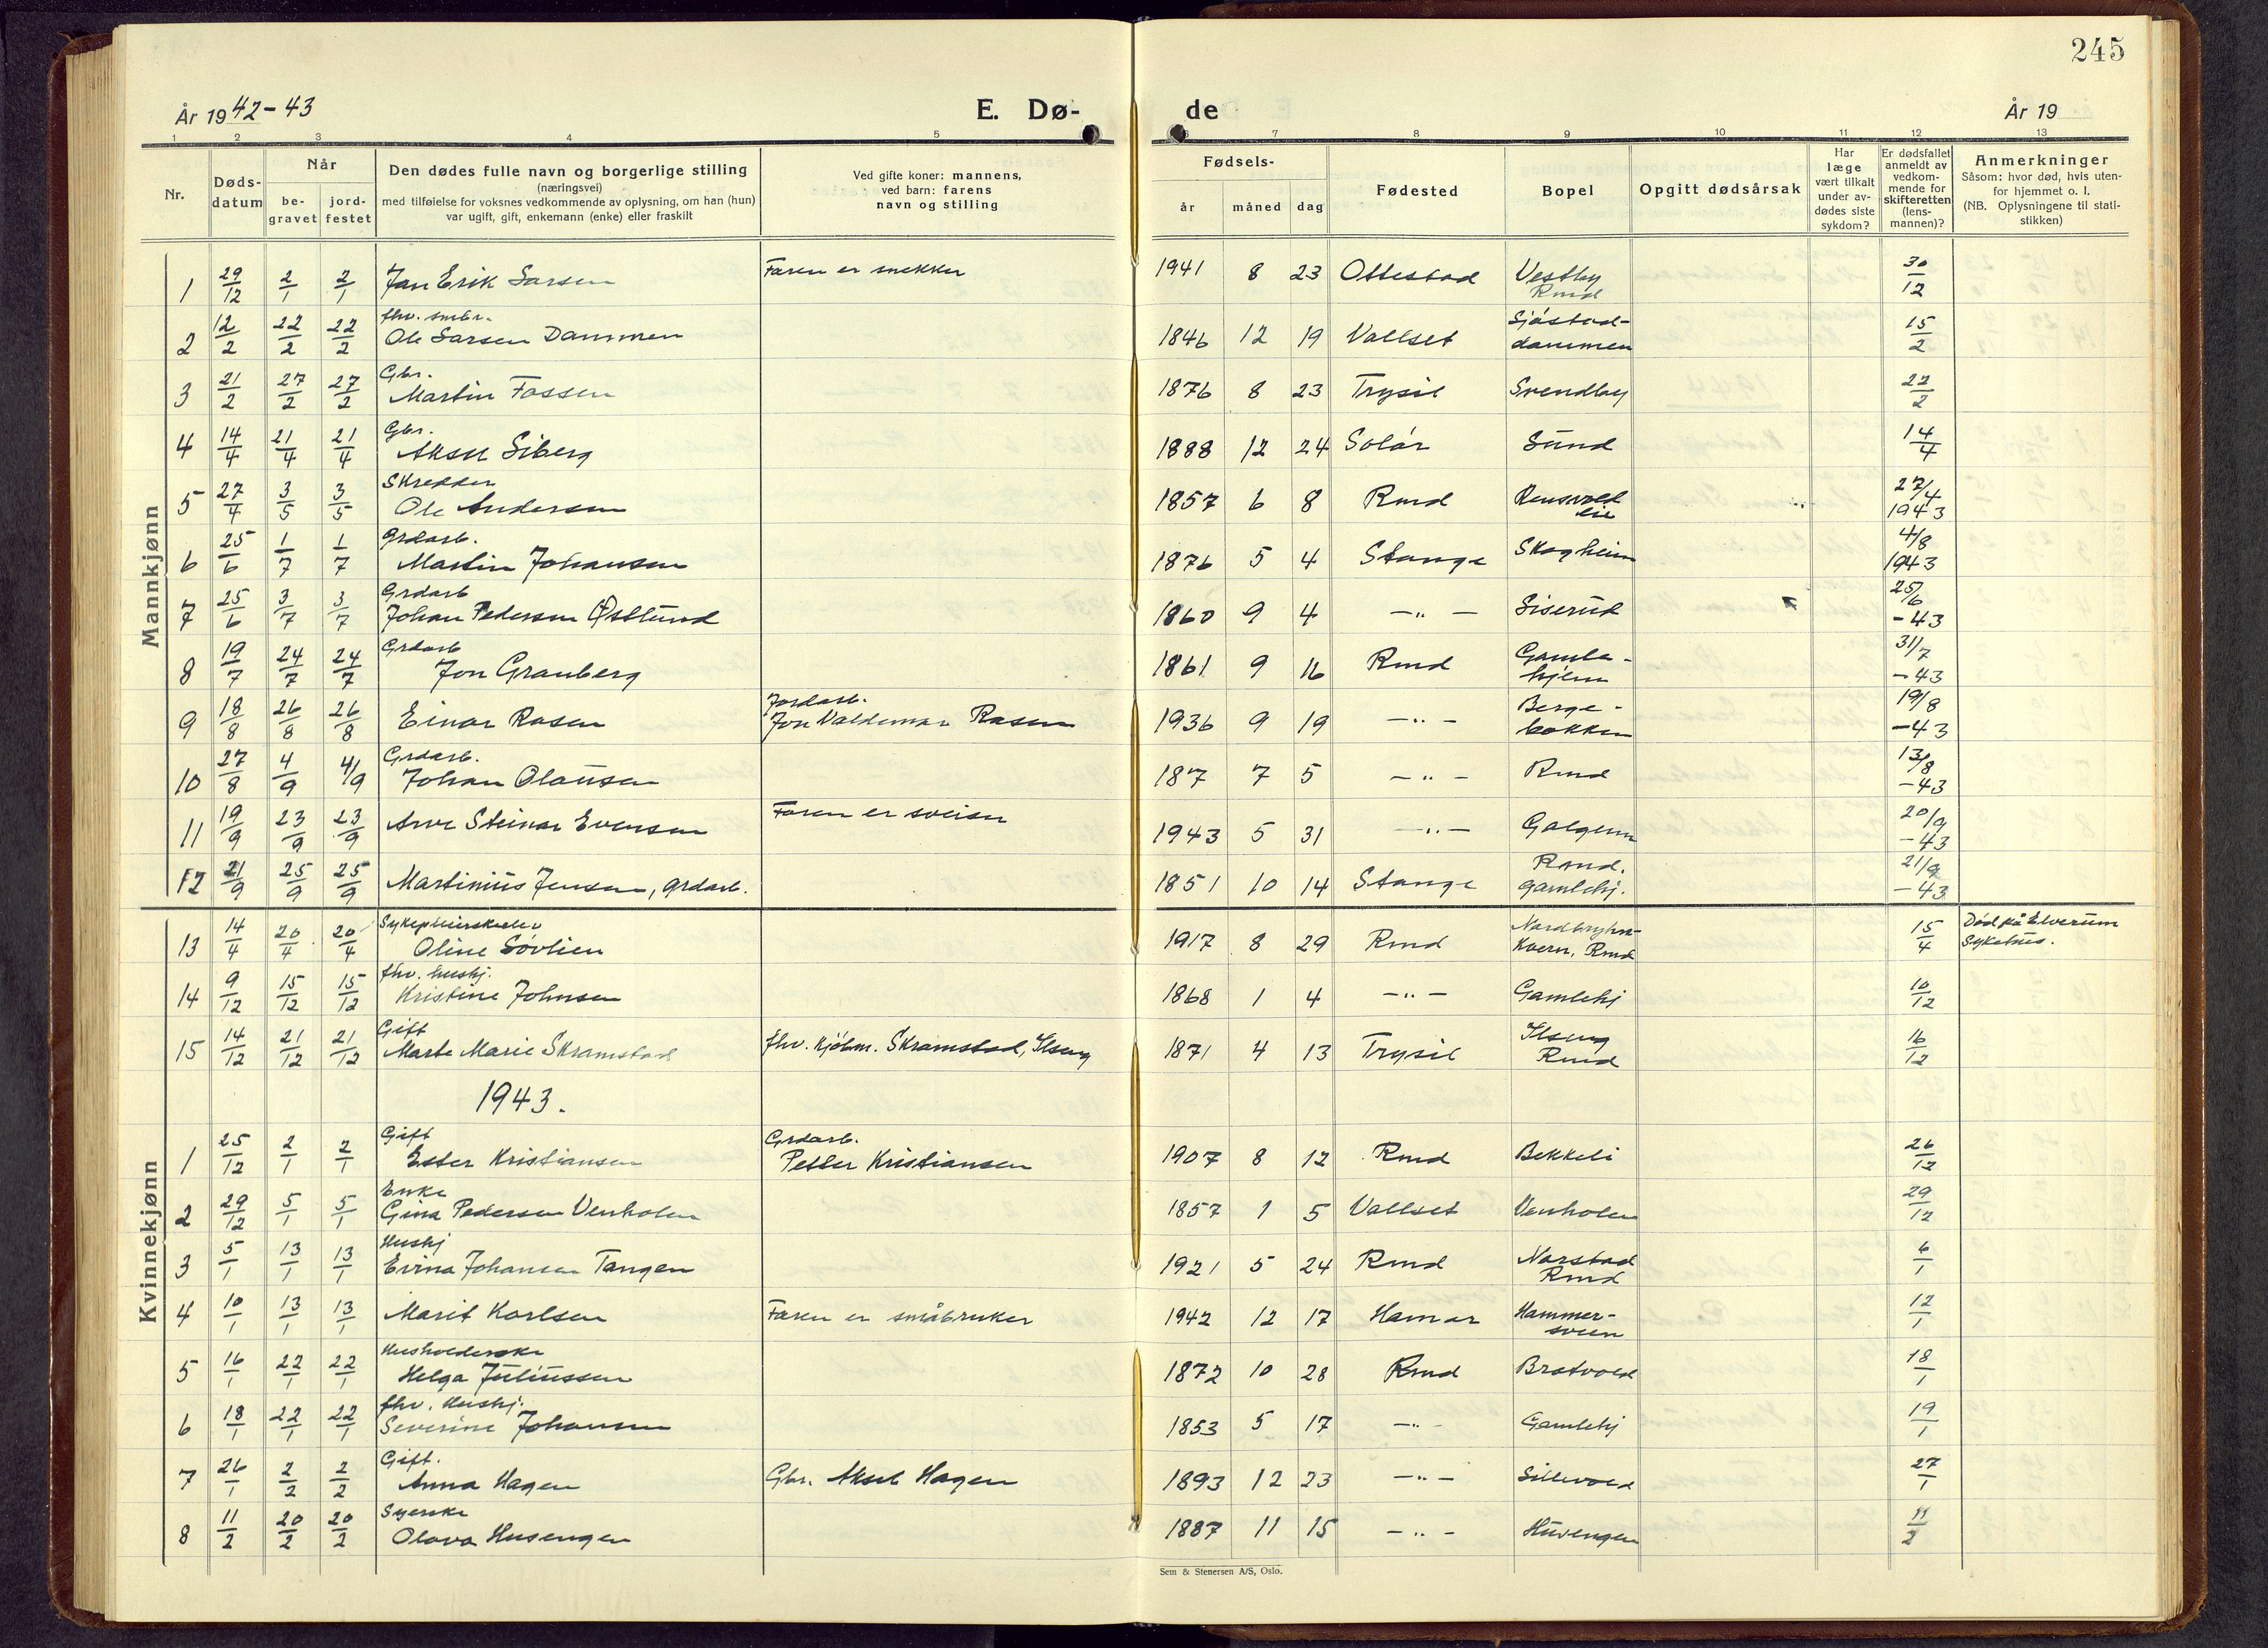 245
År 1942-43
E. Dø-
de
År 19
1 2 3 4 5 6 7 8 9 10 11 12 13
Nr.
Døds-
datum
Når
be-
gravet
jord-
festet
Den dødes fulle navn og borgerlige stilling
(næringsvei)
med tilføielse for voksnes vedkommende av oplysning, om han (hun)
var ugift, gift, enkemann (enke) eller fraskilt
Ved gifte koner: mannens,
ved barn: farens
navn og stilling
Fødsels-
år måned dag
Fødested
Bopel
Opgitt dødsårsak
Har
læge
vært tilkalt
under av-
dødes siste
sykdom?
Er dødsfallet
anmeldt av
vedkom-
mende for
skifteretten
(lens-
mannen)?
Anmerkninger
Såsom: hvor død, hvis uten-
for hjemmet o. l.
(NB. Oplysningene til stati-
stikken)
Mannkjønn
1 29/12 2/1 2/1 Jan Erik Larsen Faren er snekker 1941 8 23 Ottestad Vestby Rmd 30/12
2 12/2 22/2 22/2 fhv. smbr. Ole Larsen Dammen 1846 12 19 Vallset Sjøstad-dammen 15/2
3 21/2 27/2 27/2 Gbr. Martin Fossen 1876 8 23 Trysil Svendby 22/2
4 14/4 21/4 21/4 Gbr. Aksel Siberg 1888 12 24 Solør Sund 14/4
5 27/4 3/5 3/5 Skredder Ole Andersen 1857 6 8 Rmd 27/4 1943
6 25/6 1/7 1/7 Grdarb. Martin Johansen 1876 5 4 Stange Skogheim 4/8 1943
7 25/6 3/7 3/7 Grdarb Johan Pedersen Østlund 1860 9 4 -"- Siserud 25/6 -43
8 19/7 24/7 24/7 Grdarb Jon Granberg 1861 9 16 Rmd Gamle-hjem 31/7 -43
9 18/8 26/8 26/8 Einar Rasen Jordarb. Jon Valdemar Rasen 1936 9 19 -"- Berge-bakken 19/8 -43
10 27/8 4/9 4/9 Grdarb. Johan Olausen 187 7 5 -"- Rmd 13/8 -43
11 19/9 23/9 23/9 Arve Steinar Evensen Faren er sveiser 1943 5 31 -"- Galgem 20/9 -43
12 21/9 25/9 25/9 Martinius Jensen, grdarb. 1851 10 14 Stange Rmd. gamlehj. 21/9 -43
Kvinnekjønn
13 14/4 20/4 20/4 Sykepleierskeelev Oline Søvlien 1917 8 29 Rmd Nordbyhn-Kvern, Rmd 15/4 Død på Elverum Sykehus.
14 9/12 15/12 15/12 fhv. hushj. Kristine Johnsen 1868 1 4 -"- Gamlehj 10/12
15 14/12 21/12 21/12 Gift Marte Marie Skramstad fhv. kjøbm. Skramstad, Ilseng 1871 4 13 Trysil Ilseng Rmd 16/12
1943.
1 25/12 2/1 2/1 Gift Ester Kristiansen Grdarb. Petter Kristiansen 1907 8 12 Rmd Bekkeli 26/12
2 29/12 5/1 5/1 Enke Gina Pedersen Venholen 1857 1 5 Vallset Venholen 29/12
3 5/1 13/1 13/1 Hushj Evina Johansen Tangen 1921 5 24 Rmd Narstad Rmd 6/1
4 10/1 13/1 13/1 Marit Karlsen Faren er småbruker 1942 12 17 Hamar Hammer-sveen 12/1
5 16/1 22/1 22/1 Husholderske Helga Juliussen 1872 10 28 Rmd Bratvold 18/1
6 18/1 22/1 22/1 fhv. Hushj. Severine Johansen 1853 5 17 -"- Gamlehj 19/1
7 26/1 2/2 2/2 Gift. Anna Hagen Gbr. Aksel Hagen 1893 12 23 -"- Sillevold 27/1
8 11/2 20/2 20/2 Syerske Olava Husengen 1887 11 15 -"- Huvengen 11/2
Sem & Stenersen A/S, Oslo.